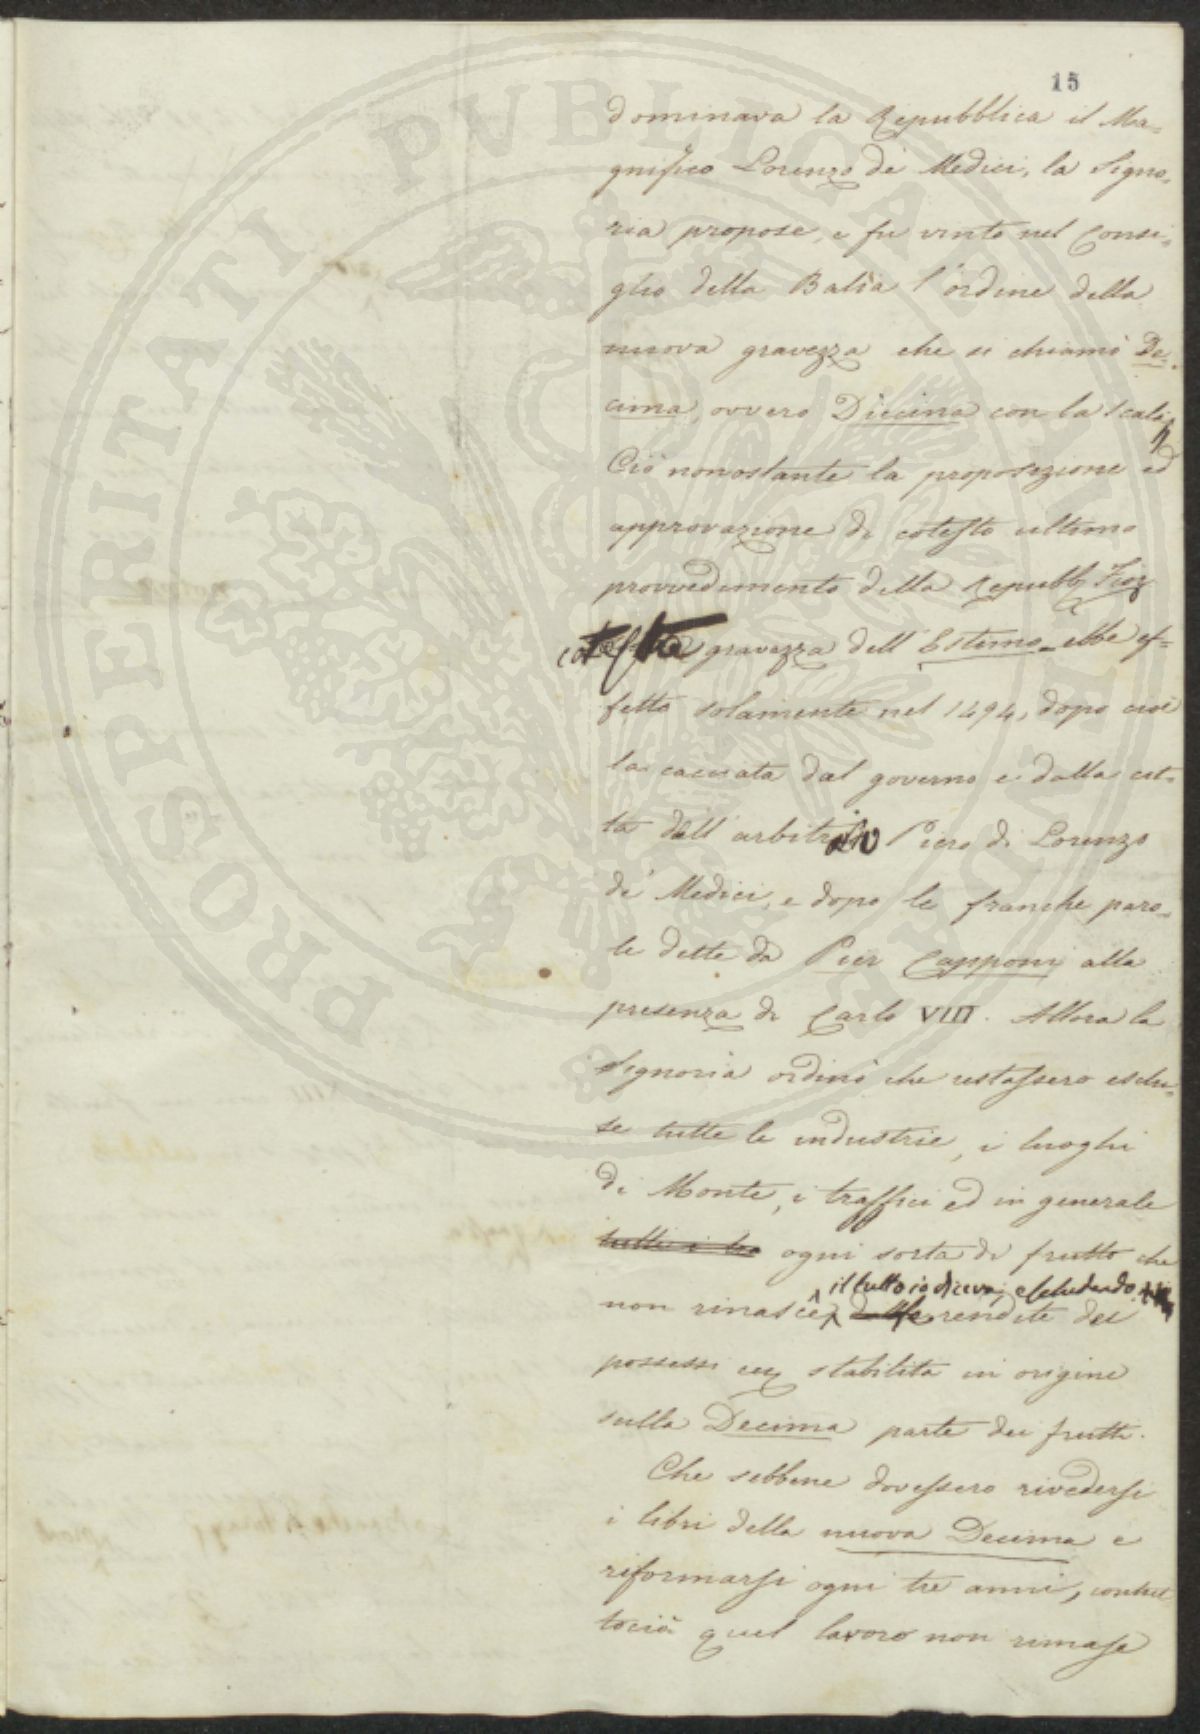 15
dominava la Repubblica il Ma-
gnifico Lorenzo de' Medici, la Signo-
ria propose, e fu vinto nel Consi-
glio della Balìa l'ordine della
nuova gravezza che si chiamò De-
cima, ovvero Diecina con la scala
Ciò nonostante la proposizione ed
approvazione di cotesto ultimo
provvedimento della Repubb. Fior.
gravezza dell'Estimo ebbe ef-
fetto solamente nel 1494, dopo cioè
la cacciata dal governo e dalla cit-
tà dell' Piero di Lorenzo
de' Medici, e dopo le franche paro-
le dette da Pier Capponi alla
presenza di Carlo VIII. Allora la
Signoria ordinò che restassero esclu-
se tutte le industrie, i luoghi
di Monte, i traffici ed in generale
tutti i ogni sorta di frutto che
il tutto io diceva, escludendo
non rinasce, dalle rendite dei
possessi stabilita in origine
sulla Decima parte dei frutti.
Che sebbene dovessero rivedersi
i libri della nuova Decima e
riformarsi ogni tre anni, contut-
tociò quel lavoro non rimase
PROSPERITATI PVBLICAE